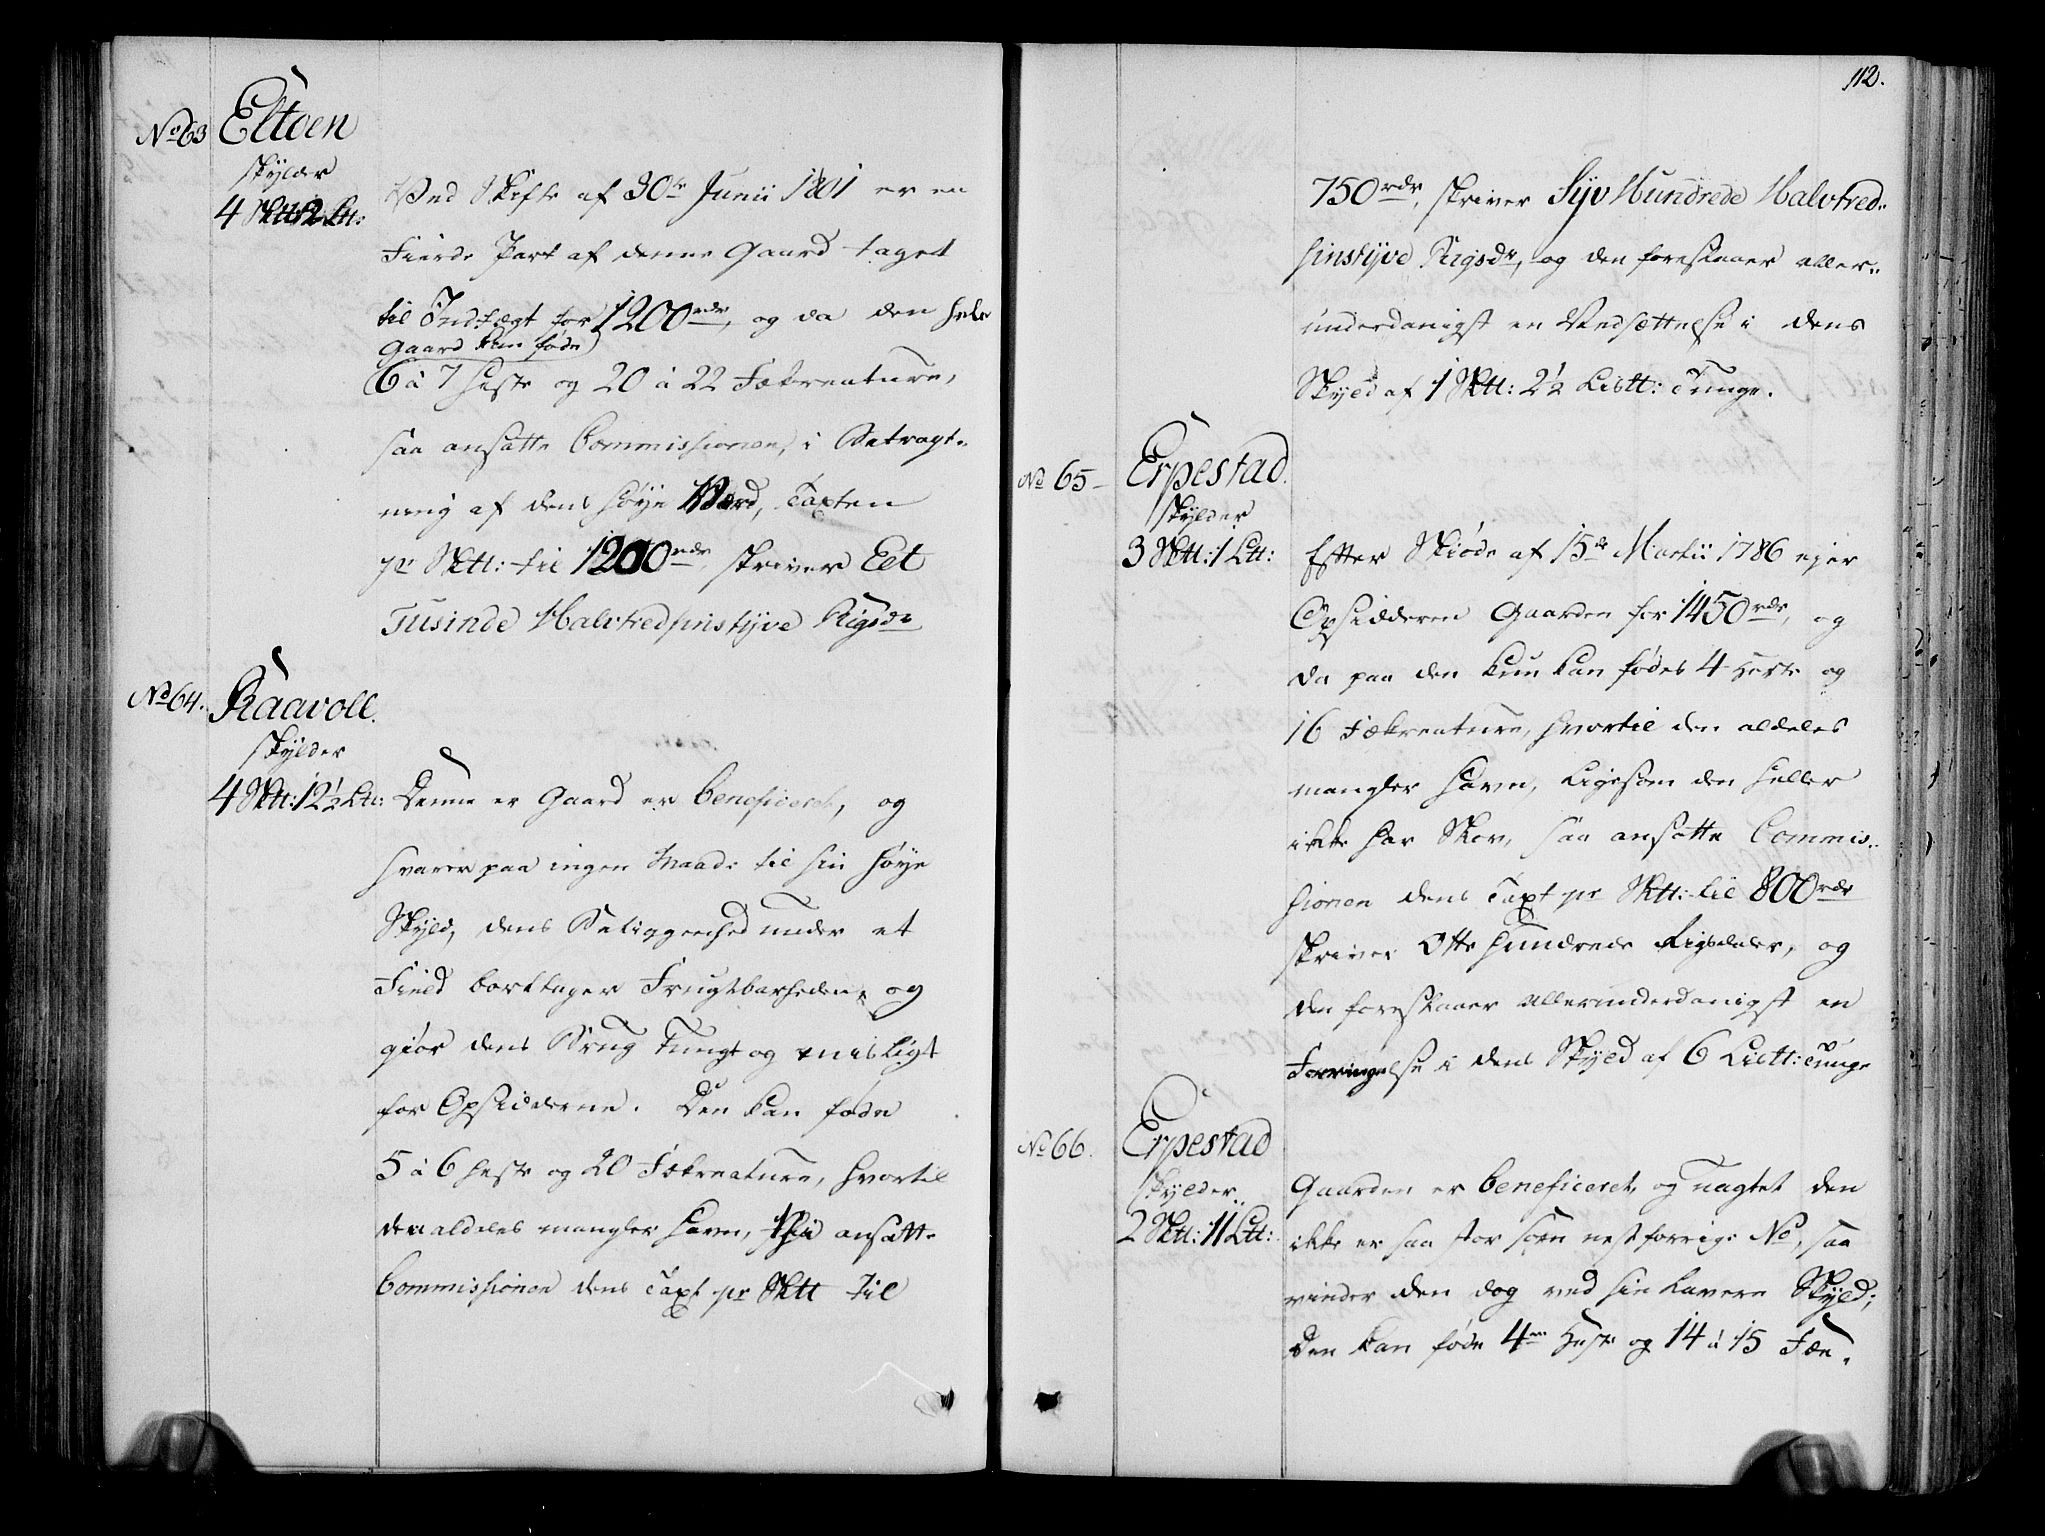 No 63 Eltoen
skylder
4 Sktt: 2 Ltt:
Ved Skifte af 30te Junii 1801 er en
Fierde Part af denne Gaard taget
til Indtægt for 1200 rdr, og da den hele
Gaard kan føde
6 à 7 Heste og 20 à 22 Fækreature,
saa ansatte Commissionen, i Betragt-
ning af dens høye Værd, Taxten
pr Sktt: til 1200 rdr, skriver Eet
Tusinde Halvtredsinstyve Rigsdr
No 64. Raavoll.
skylder
4 Sktt: 12½ Ltt:
Denne er Gaard er beneficeret, og
svarer paa ingen Maade til sin høye
Skyld, dens Beliggenhed under et
Field borttager Frugtbarheden, og
giør dens Brug Tungt og misligt
for Opsidderne. Den kan føde
5 à 6 Heste og 20 Fækreature, hvortil
den aldeles mangler Havn, thi ansatte
Commissionen dens Taxt pr Sktt til
112.
750 rdr, skriver Syv Hundrede Halvtred-
sinstyve Rigsdr, og den foreslaaer aller-
underdanigst en Nedsættelse i dens
Skyld af 1 Sktt: 2½ Listt: Tunge.
No 65 Erpestad.
skylder
3 Sktt: 1 Ltt:
Efter Skiøde af 15de Martii 1786 ejer
Opsidderen Gaarden for 1450 rdr, og
da paa den kun kan fødes 4 Heste og
16 Fækreature, hvortil den aldeles
mangler Havn, ligesom den heller
ikke har Skov, saa ansatte Commis-
sionen dens Taxt pr Sktt: til 800 rdr
skriver Otte Hundrede Rigsdaler, og
den foreslaaer allerunderdanigst en
Forringelse i dens Skyld af 6 Listt: Tunge
No 66. Erpestad
skylder
2 Sktt: 11 Ltt:
Gaarden er beneficeret, og uagtet den
ikke er saa stor som nestforrige No, saa
vinder den dog ved sin lavere Skyld;
Den kan føde 4re Heste og 14 à 15 Fæe-